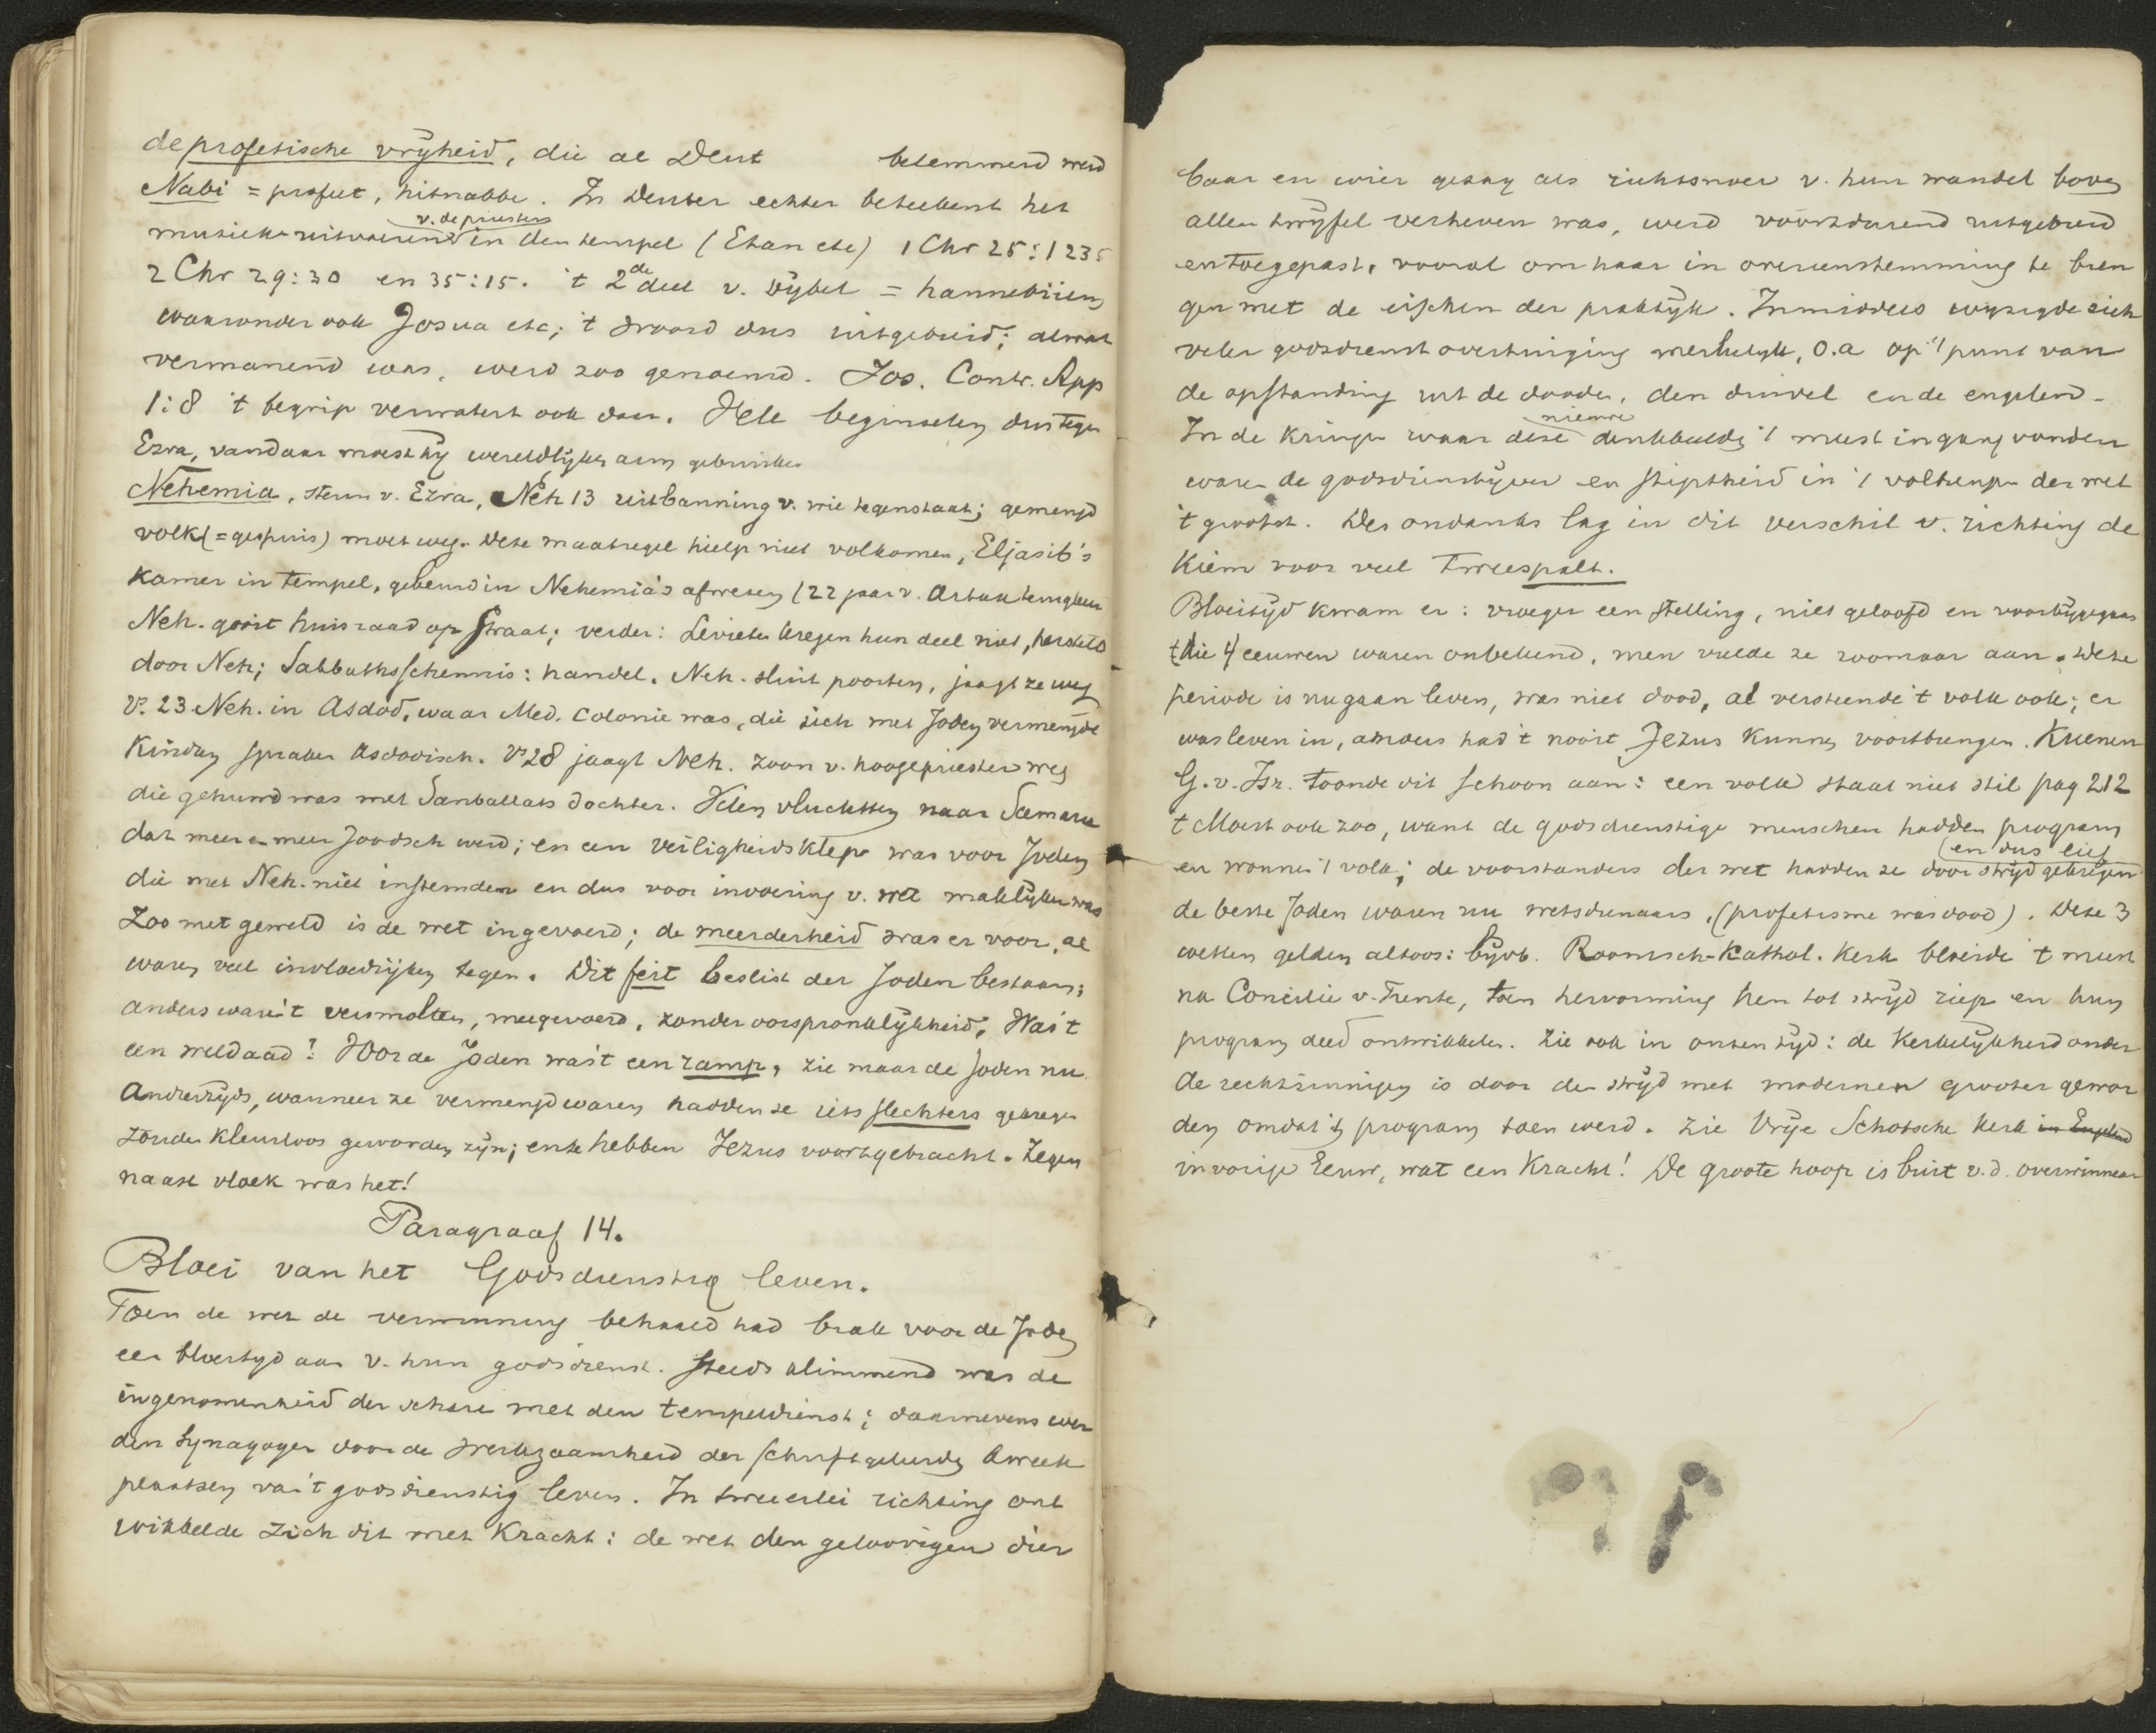 de profetische vrijheid, die al Deut belemmerd werd
Nabi = profeet, hitnabbe. In Deuter echter beteekent het
v. de priesters
muziek uitvoerend in den tempel (Etan etc) 1 Chr 25:1 2 3 5
2 Chr 29:30 en 35:15. 't 2de deel v. Bijbel = hannebiiem
waaronder ook Josua etc; 't woord dus uitgebreid; alwat
vermanend was, werd zoo genoemd. Jos. Contr. App
1:8 't begrip verwatert ook daar. Vele beginselen dus tegen
Ezra, vandaar moest hij wereldlijken arm gebruiken
Nehemia, steun v. Ezra, Neh 13 uitbanning v. wie tegenstaat; gemengd
volk (= gespuis) moet weg. Deze maatregel hielp niet volkomen, Eljasib's
kamer in tempel, gebeurd in Nehemia's afwezen (22 jaar v. Artax terugkeer
Neh. gooit huisraad op straat; verder: Levieten kregen hun deel niet, hersteld
door Neh; Sabbathsschennis: handel. Neh. sluit poorten, jaagt ze weg
V. 23 Neh. in Asdod, waar Med. Colonie was, die zich met Joden vermengde
Kinderen spraken Asdodisch. Vs 28 jaagt Neh. zoon v. hoogepriester weg
die gehuwd was met Sanballats dochter. Velen vluchtten naar Samaria
dat meer en meer Joodsch werd; en een veiligheidsklep was voor Joden
die met Neh. niet instemden en dus voor invoering v. wet maklijker was
Zoo met geweld is de wet ingevoerd; de meerderheid was er voor, al
waren veel invloedrijken tegen. Dit feit beslist der Joden bestaan;
anders ware 't versmolten, meegevoerd, zonder oorspronklijkheid; Was 't
een weldaad? Voor de Joden was 't een ramp, zie maar de Joden nu.
Anderzijds, wanneer ze vermengd waren hadden ze iets slechters gekregen
zouden kleurloos geworden zijn; en ze hebben Jezus voortgebracht. Zegen
naast vloek was het!
Paragraaf 14.
Bloei van het Godsdienstig leven.
Toen de wet de verwinning behaald had brak voor de Joden
een bloeitijd aan v. hun godsdienst. Steeds klimmend was de
ingenomenheid der schare met den tempeldienst; daarnevens wer
den Synagogen door de werkzaamheid der schriftgeleerden kweek
plaatsen van 't godsdienstig leven. In tweeerlei richting ont
wikkelde zich dit met kracht: de wet den geloovigen dier
baar en wier gezag als richtsnoer v. hun wandel boven
allen twijfel verheven was, werd voortdurend uitgebreid
en toegepast, vooral om haar in overeenstemming te bren
gen met de eischen der praktijk. Inmiddels wijzigde zich
veler godsdienst overtuiging merkelijk, o.a op 't punt van
de opstanding uit de dooden, den duivel en de engelen.
nieuwe
In de kringen waar deze denkbeelden 't meest ingang vonden
waren de godsdienstijver en stiptheid in 't volbrengen der wet
't grootst. Des ondanks lag in dit verschil v. richting de
Kiem voor veel tweespalt.
Bloeitijd kwam er: vroeger een stelling, niet geloofd en voorbijgegaan
die 4 eeuwen waren onbekend, men vulde ze zoomaar aan. Deze
periode is nu gaan leven, was niet dood, al versteende 't volk ook; er
was leven in, anders had 't nooit Jezus kunnen voortbrengen. Kuenen
G. v. Isr. toonde dit schoon aan: een volk staat niet stil pag 212
't Moest ook zoo, want de godsdienstige menschen hadden program
(en dus lief
en wonnen 't volk; de voorstanders der wet hadden ze door strijd gekregen
de beste Joden waren nu wetsdienaars, (profetisme was dood). Deze 3
wetten gelden altoos: bijvb. Roomsch-Kathol. Kerk bloeide 't meest
na Concilie v. Trente, toen hervorming hen tot strijd riep en hun
program deed ontwikkelen. Zie ook in onzen tijd: de Kerkelijkheid onder
de rechtzinnigen is door den strijd met modernen grooter gewor
den omdat 't program toen werd. Zie Vrije Schotsche Kerk in Engeland
in vorige Eeuw, wat een Kracht! De groote hoop is buit v. d. overwinnaar